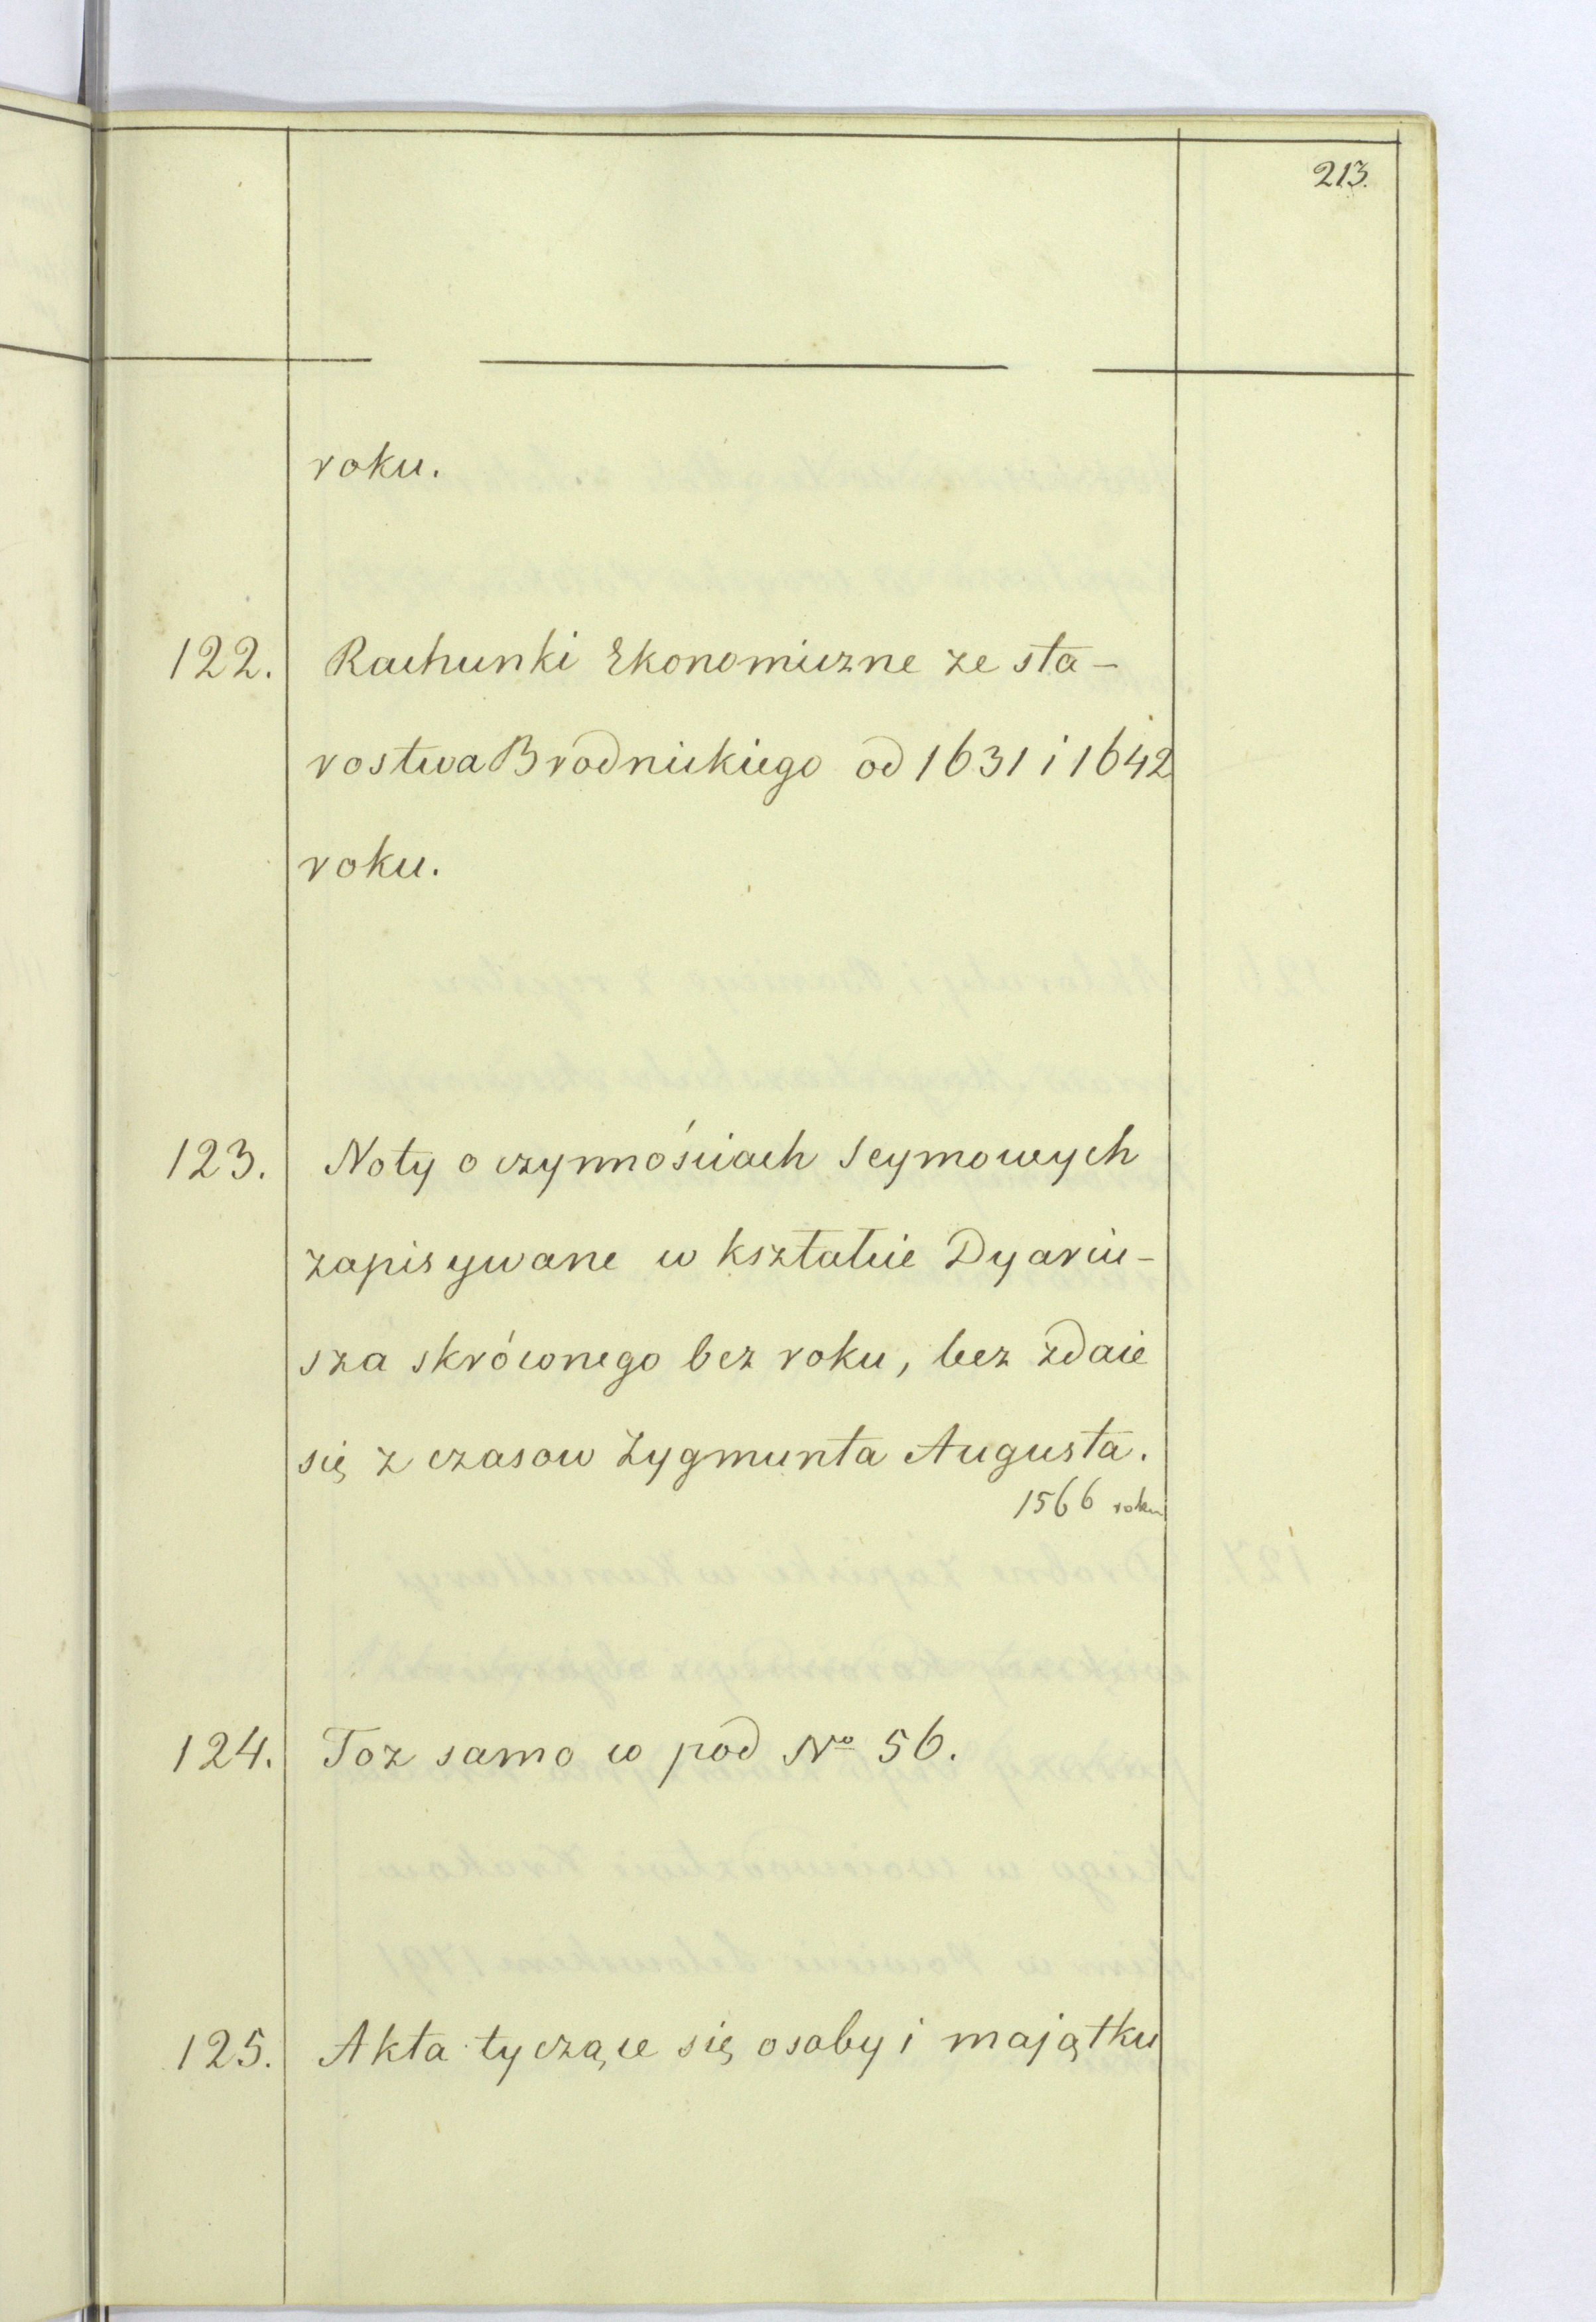 213.
roku.
122. Rachunki Ekonomiczne ze sta-
rostwa Brodnickiego od 1631 i 1642
roku.
123. Noty o czynnościach Seymowych
zapisywane w kształcie Dyariu-
sza skróconego bez roku, lecz zdaie
się z czasow Zygmunta Augusta.
1566 roku
124. Toz samo co pod No 56.
125. Akta tyczące się osoby i majątku